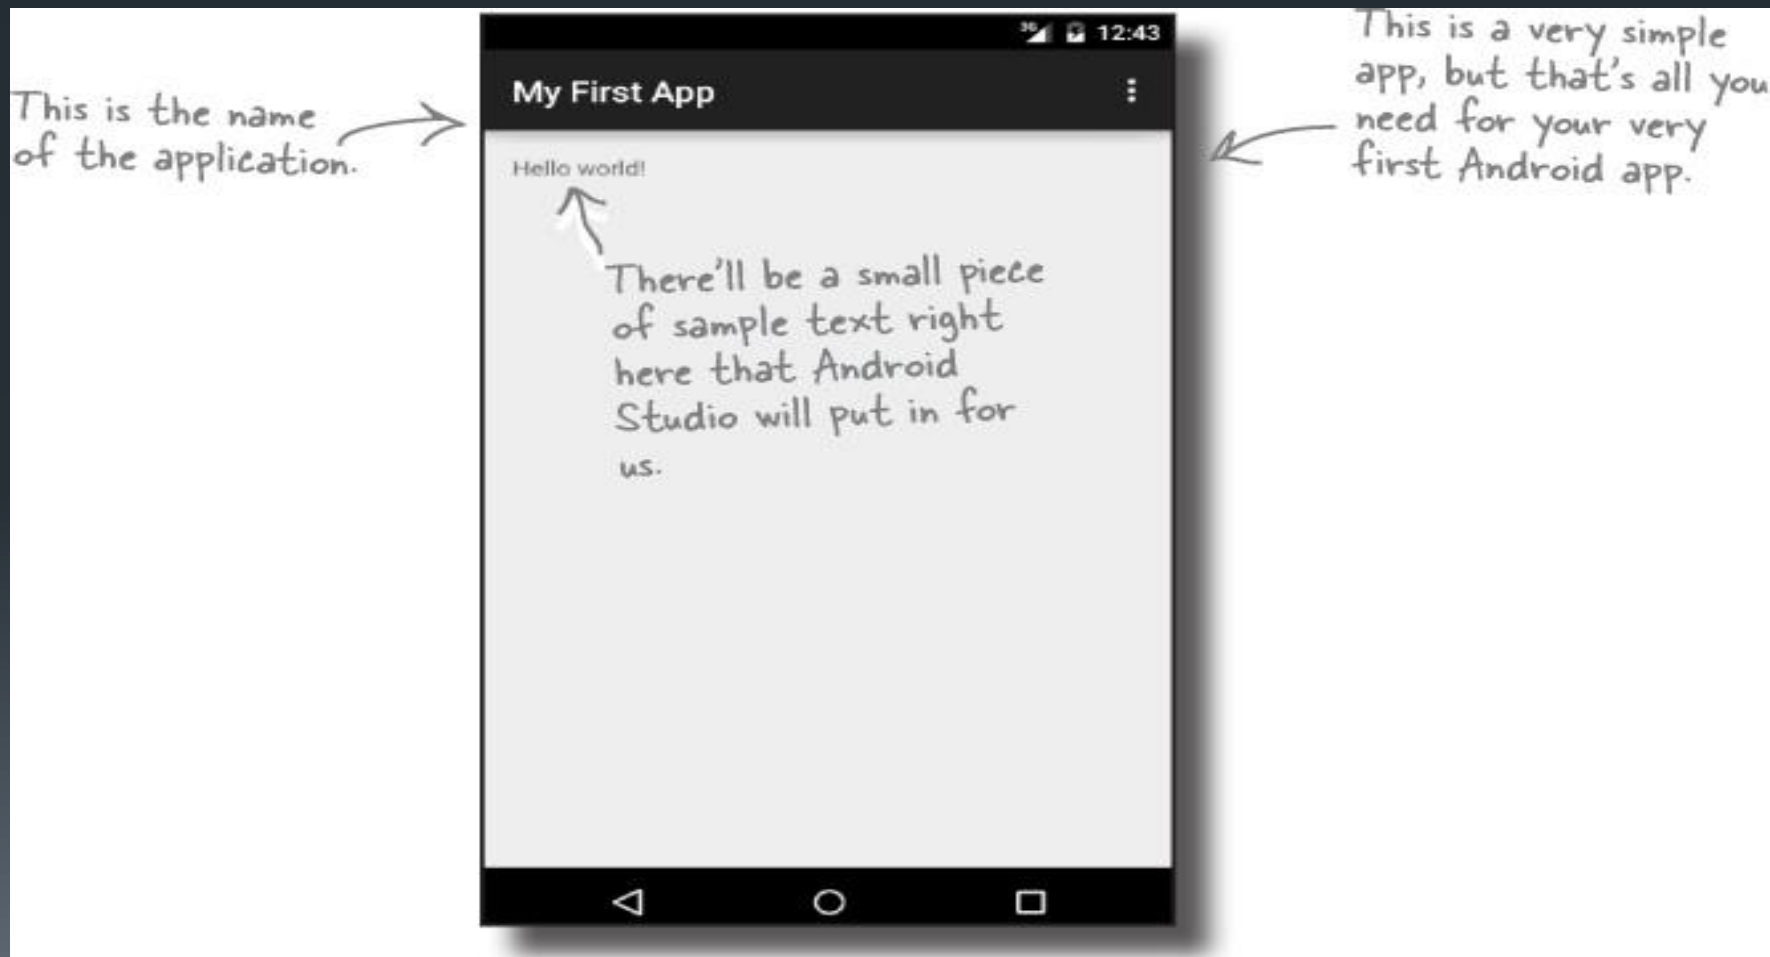 This is the name
of the application.
3G 12:43
My First App
Hello world!
There'll be a small piece
of sample text right
here that Android
Studio will put in for
us.
This is a very simple
app, but that's all you
need for your very
first Android app.